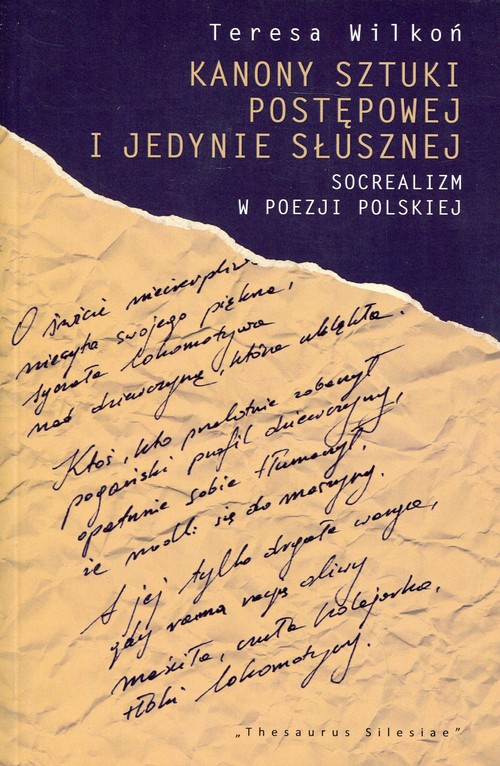 Teresa Wilkoń
KANONY SZTUKI
POSTĘPOWEJ
I JEDYNIE SŁUSZNEJ
SOCREALIZM
W POEZJI POLSKIEJ
O świcie niecierpliwa
niesyta swojego piękna,
syczała lokomotywa
nad dziewczyną, która uklękła.
Ktoś, kto przelotnie zobaczył
pogański profil dziewczyny,
opatrznie sobie tłumaczył,
że modli się do maszyny.
A jej tylko drgały wargi,
gdy ranną racją oliwy
maściła, czuła kolejarka,
tłoki lokomotywy.
„Thesaurus Silesiae"